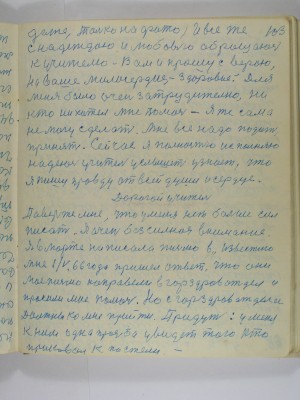 даже, только на фото, и все же 103
с надеждою и любовью обращаюсь
к учителю – Вам и прошу с верою,
на Ваше милосердие – здоровье. Для
меня было очень затруднительно, но
кто хотел мне помочь – Я же сама
не могу сделать. Мне все надо подать,
принять. Сейчас я полностью
надеюсь учитель услышит узнает, что
я пишу правду от всей души и сердца.
Дорогой учитель
Поверьте мне, что у меня нет больше сил
писать. Я очень бессильная
В марте написала письмо в
мне 8/V, 66 года пришел ответ, что они
мое письмо направили в горздравотдел и
просили мне помочь. Но с горздравотдела
должны ко мне прийти. Придут: у меня
к ним одна просьба увидеть того кто
прикован к постели –